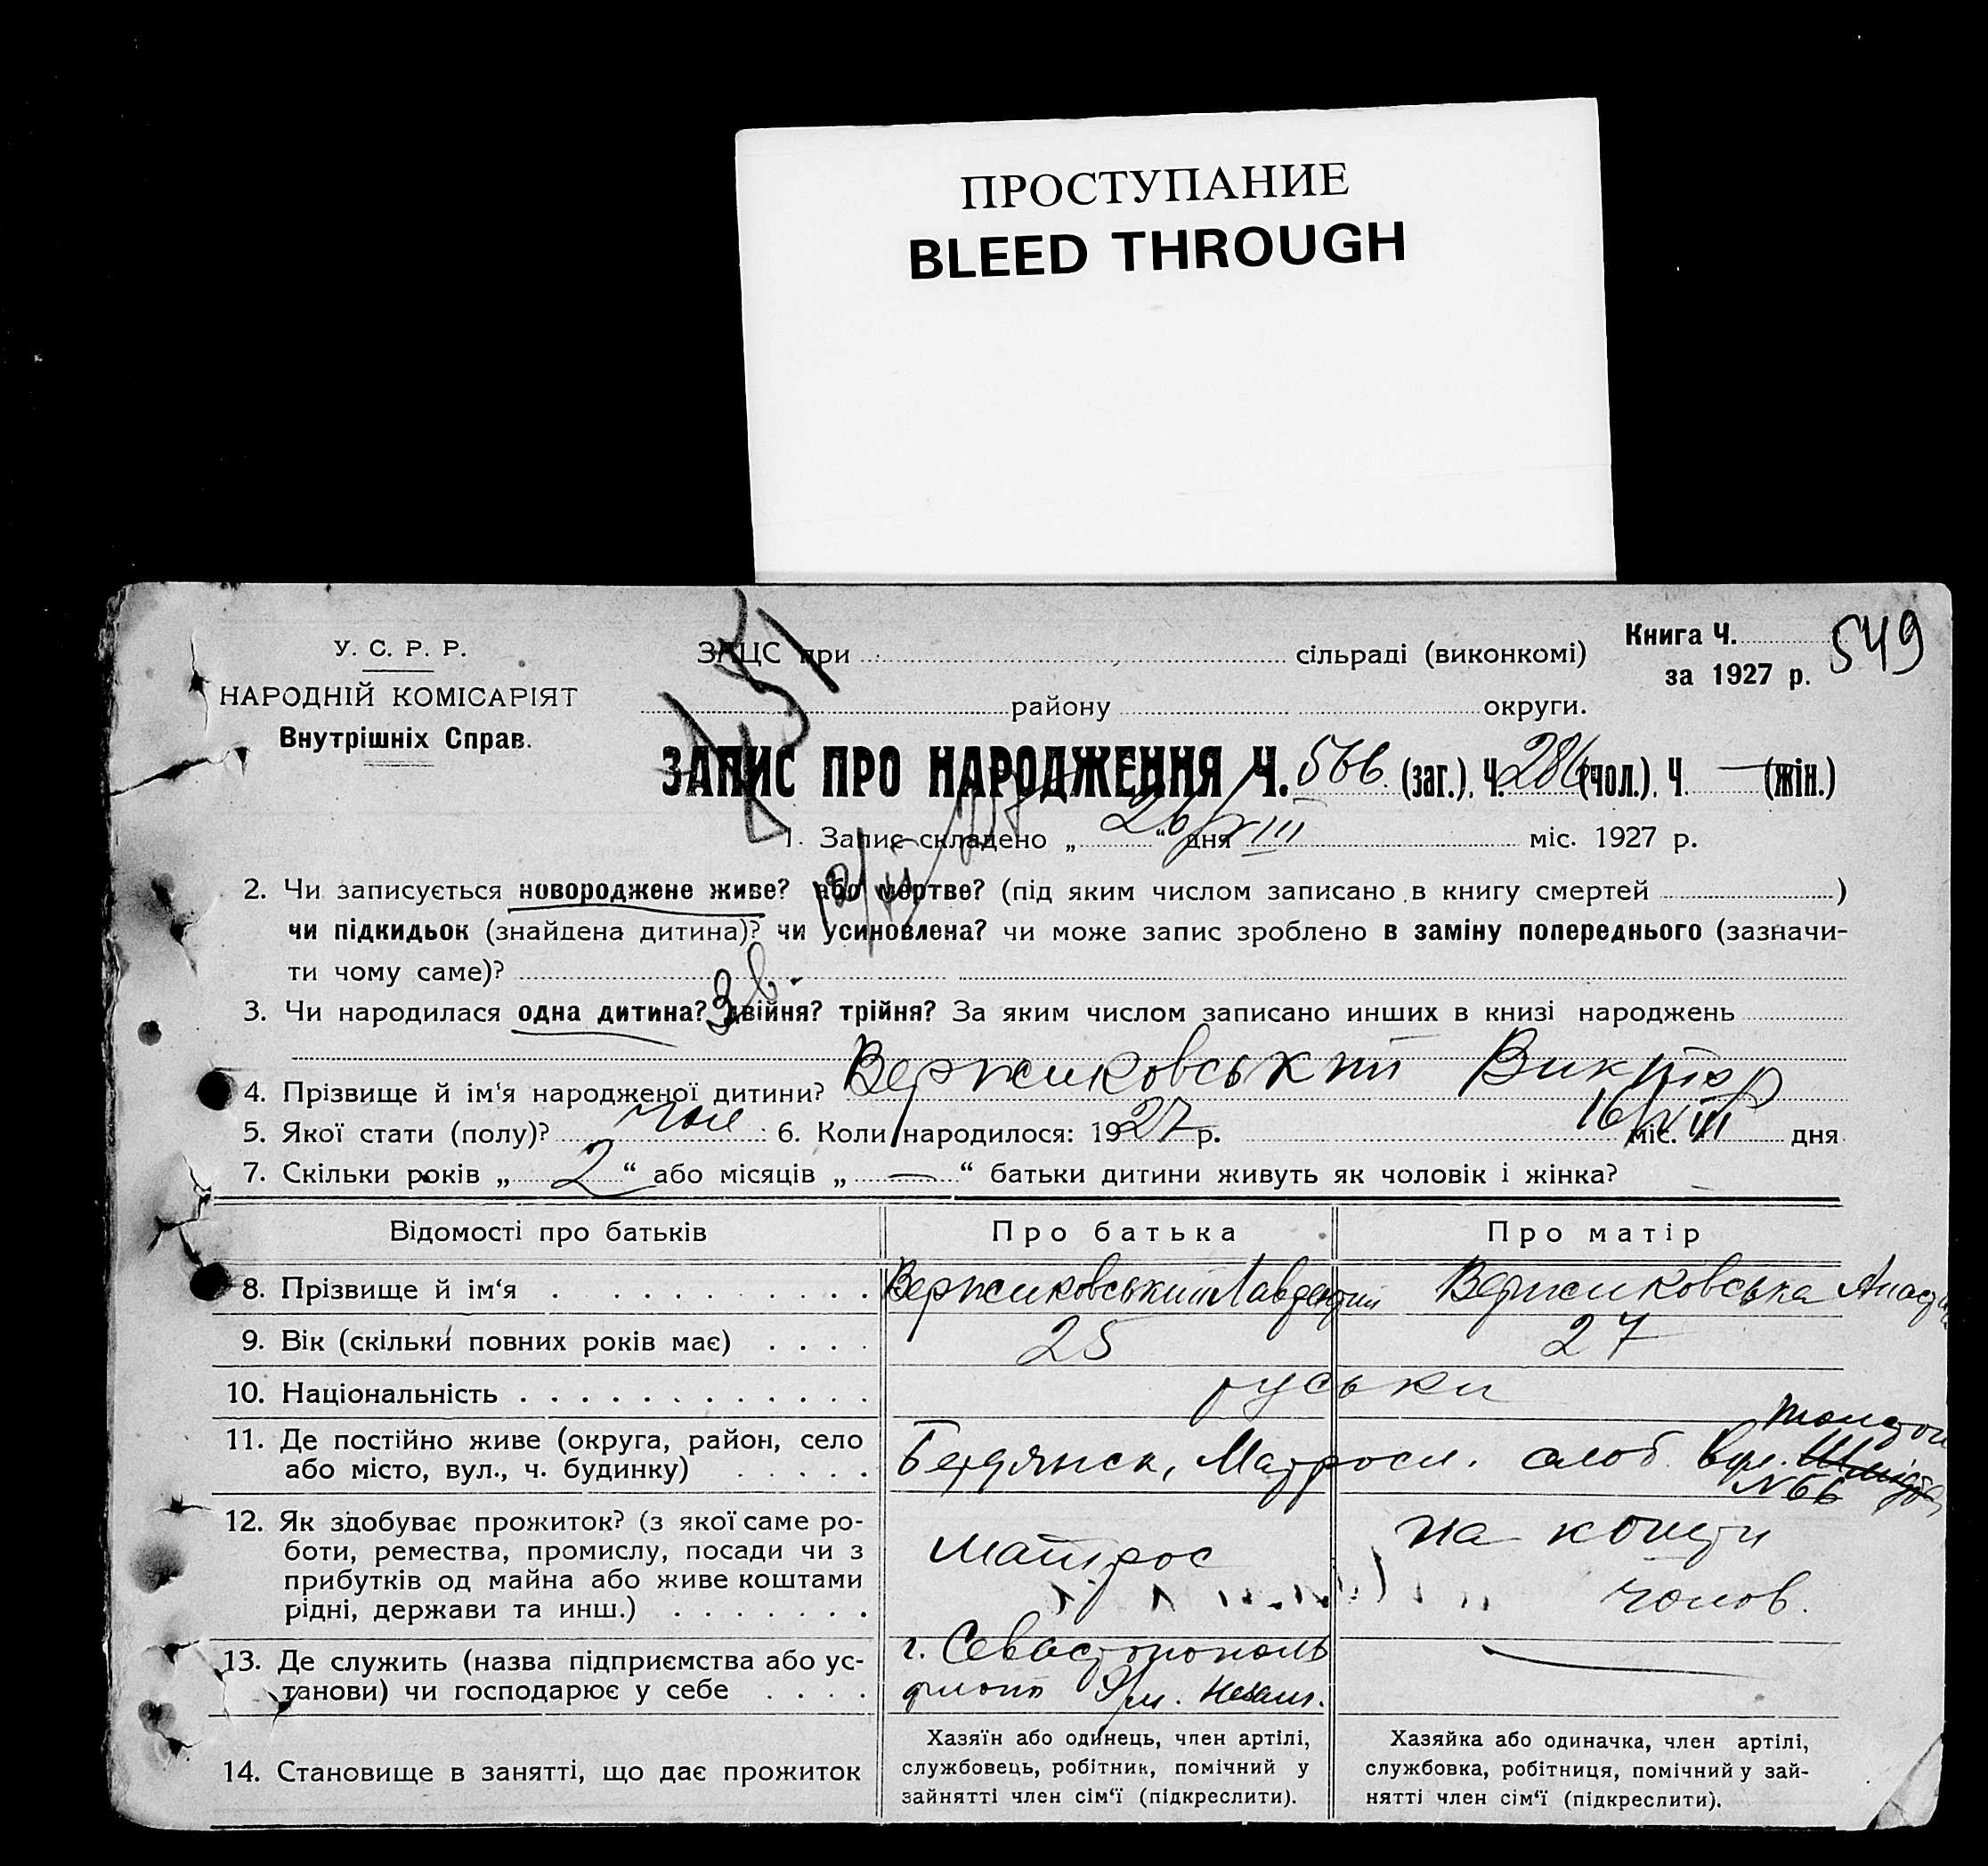 ПРОСТУПАНИЕ
BLEED THROUGH
У. С. Р. Р.
НАРОДНІЙ КОМІСАРІЯТ
Внутрішніх Справ.
ЗАЦС при сільраді (виконкомі)
району округи.
Книга Ч.
за 1927 р.
549
ЗАПИС ПРО НАРОДЖЕННЯ Ч. 566 (заг.), Ч. 286 (чол.), Ч. — (жін.)
1. Запис складено „ 26 “ дня VIII міс. 1927 р.
2. Чи записується новороджене живе? або мертве? (під яким числом записано в книгу смертей )
чи підкидьок (знайдена дитина)? чи усиновлена? чи може запис зроблено в заміну попереднього (зазначи-
ти чому саме)?
3. Чи народилася одна дитина? двійня? трійня? За яким числом записано инших в книзі народжень
4. Прізвище й ім‘я народженої дитини? Вержиковський Виктор
5. Якої стати (полу)? чол 6. Коли народилося: 1927 р. 16/VIII міс. дня
7. Скільки років „ 2 “ або місяців „ — “ батьки дитини живуть як чоловік і жінка?
Відомості про батьків Про батька Про матір
8. Прізвище й ім‘я Вержиковський Лаврентий Вержиковська
9. Вік (скільки повних років має) 25 27
10. Національність руськи
11. Де постійно живе (округа, район, село
або місто, вул., ч. будинку)
Бердянск, Матросл. слоб. вул.
N 66
12. Як здобуває прожиток? (з якої саме ро-
боти, ремества, промислу, посади чи з
прибутків од майна або живе коштами
рідні, держави та инш.)
матрос
на кошти
чолов.
13. Де служить (назва підприємства або ус-
танови) чи господарює у себе
г. Севастополь
—
14. Становище в занятті, що дає прожиток
Хазяїн або одинець, член артілі,
службовець, робітник, помічний у
зайнятті член сім‘ї (підкреслити).
Хазяйка або одиначка, член артілі,
службовка, робітниця, помічний у зай-
нятті член сім‘ї (підкреслити).